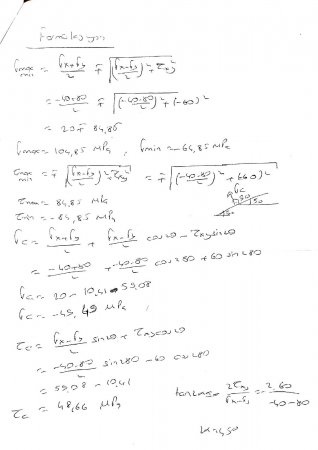 σmax/min = (σx+σy)/2 ∓ √((σx-σy)/2)² + τxy²
= (-40+80)/2 ∓ √((-40-80)/2)² + (-60)²
= 20 ∓ 84,85
σmax = 104,85 MPa , σmin = -64,85 MPa
τmax/min = ∓ √((σx-σy)/2)² + τxy² = ∓ √((-40-80)/2)² + (60)²
τmax = 84,85 MPa
τmin = -84,85 MPa
σc = (σx+σy)/2 + (σx-σy)/2 cos2θ - τxy sin2θ
= (-40+80)/2 + (-40-80)/2 cos 280 + 60 sin 280
σc = 20 - 10,41 - 59,08
σc = -49,49 MPa ,
τc = (σx-σy)/2 sin2θ + τxy cos2θ
= (-40-80)/2 sin 280 - 60 cos 280
= 59,08 - 10,41
τc = 48,66 MPa
= 2τxy/(σx-σy) = 2.60/(-40-80)